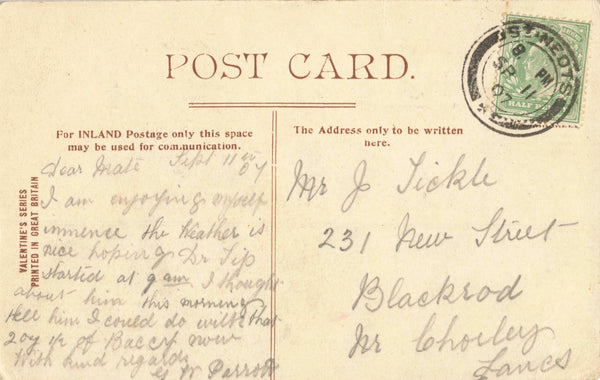 POST CARD.
For INLAND Postage only this space
may be used for communication.
The Address only to be written
here.
VALENTINE'S SERIES
PRINTED IN GREAT BRITAIN
ST. NEOTS
8 PM
SP 11
07
HALF
Dear Mate Sept 11th 07
I am enjoying myself
immence the Weather is
nice hoping Dr Tip
started at 9 am I thought
about him this morning
tell him I could do with that
20z of Baccy now
With kind regards
G W Parrott
Mr J Tickle
231 New Street
Blackrod
Nr Chorley
Lancs